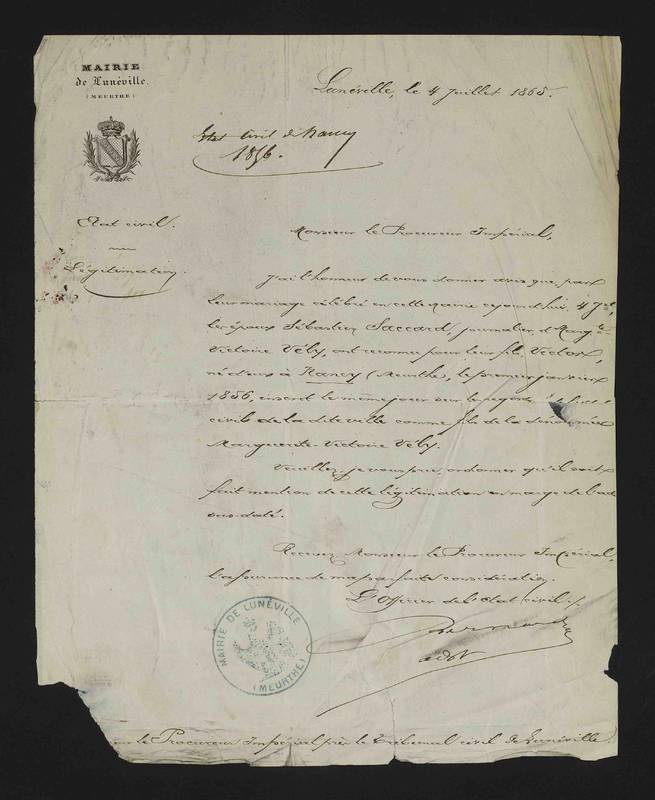 MAIRIE
de Lunéville.
(MEURTHE)
Lunéville, le 4 Juillet 1865.
Etat Civil de Nancy
1856.
Etat civil.
Légitimation.
Monsieur le Procureur Impérial,
J'ai l'honneur de vous donner avis que, par
leur mariage célébré en cette mairie cejourd'hui 4 Jet,
les époux Sébastien Saccard, journalier, et Margte
Victoire Vély, ont reconnu pour leur fils Victor,
né d'eux à Nancy (Meurthe), le premier janvier
1856, inscrit le même jour sur le registre de l'état
civil de la dite ville comme fils de la dénommée
Marguerite Victoire Vély.
Veuillez, je vous prie, ordonner qu'il soit
fait mention de cette légitimation en marge de l'acte
sus-daté.
Recevez, Monsieur le Procureur Impérial,
l'assurance de ma parfaite considération.
L'Officier de l'Etat civil :/.
adjt
MAIRIE DE LUNÉVILLE
(MEURTHE)
le Procureur Impérial près le Tribunal civil de Lunéville.